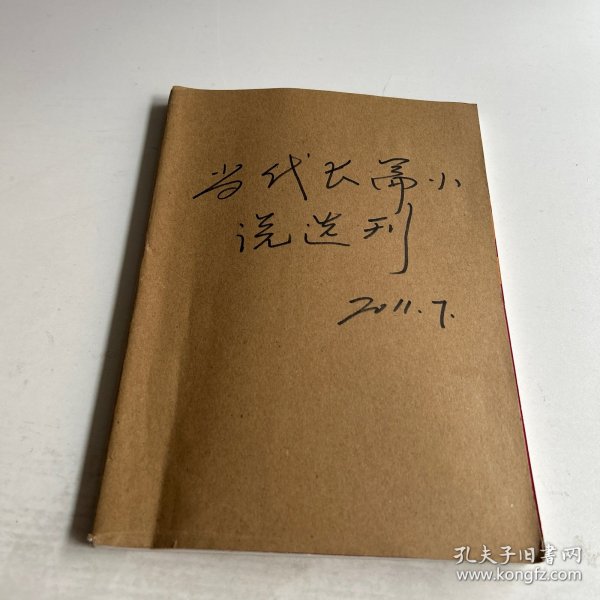 当代长篇小
说选刊
2011.7.
孔夫子旧书网
www.kongfz.com